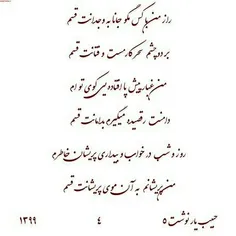 راز من با کس مگو جانا به وجدانت قسم
بر دو چشم سحرکار مست و فتانت قسم
من غبار پیش پا افتاده‌ی کوی تو ام
دامنت رقصیده میگیرم بدامانت قسم
روز و شب در خواب و بیداری پریشان خاطرم
من پریشانم به آن موی پریشانت قسم
حبیب یار نوشت ۵ ۴ ۱۳۹۹